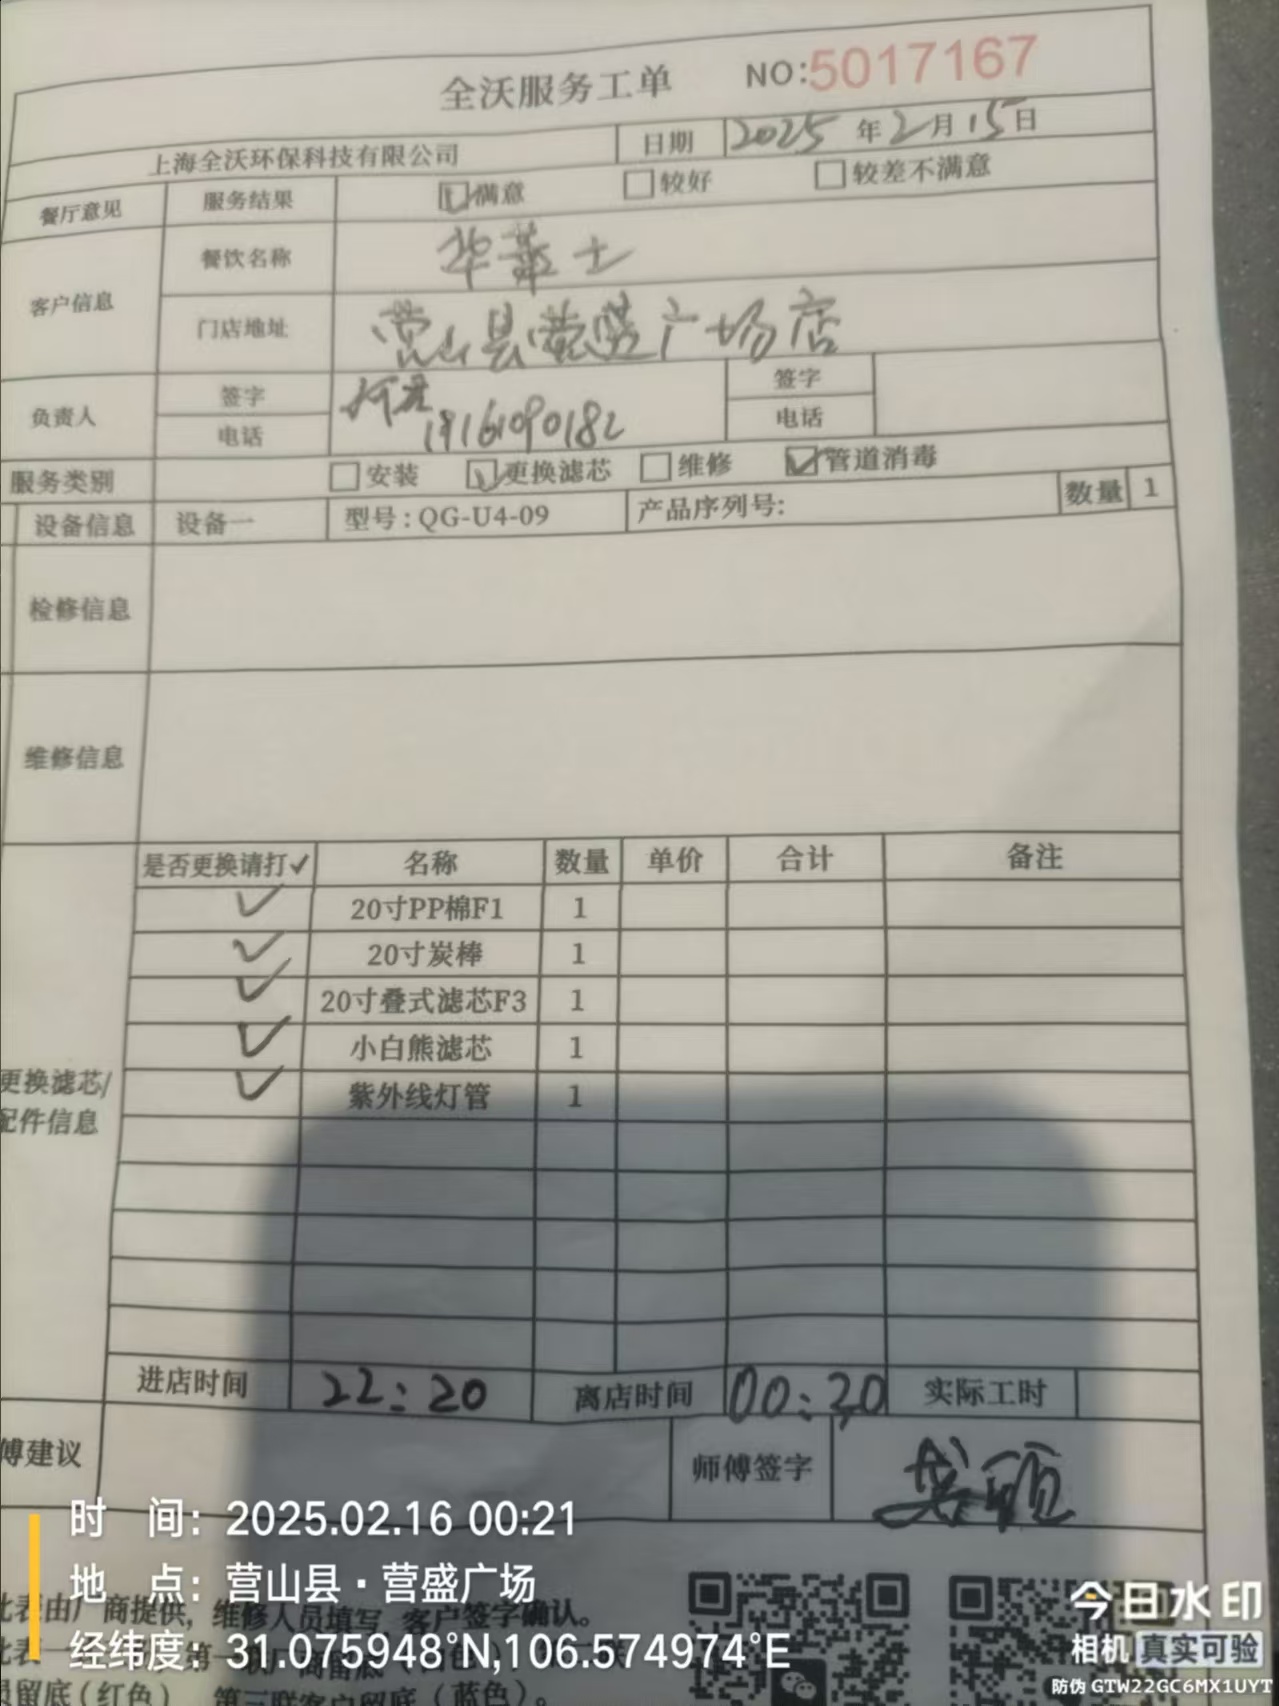 全沃服务工单 NO:5017167
上海全沃环保科技有限公司 日期 2025年2月15日
餐厅意见 服务结果 满意 较好 较差不满意
客户信息 餐饮名称 华莱士
门店地址 营山县营盛广场店
负责人 签字 签字
电话 19161090182 电话
服务类别 安装 更换滤芯 维修 管道消毒
设备信息 设备一 型号:QG-U4-09 产品序列号: 数量 1
检修信息
维修信息
是否更换请打✓ 名称 数量 单价 合计 备注
✓ 20寸PP棉F1 1
✓ 20寸炭棒 1
✓ 20寸叠式滤芯F3 1
✓ 小白熊滤芯 1
✓ 紫外线灯管 1
更换滤芯/
配件信息
进店时间 22:20 离店时间 00:20 实际工时
傅建议 师傅签字
时 间: 2025.02.16 00:21
地 点: 营山县·营盛广场
此表由厂商提供,维修人员填写,客户签字确认。
经纬度: 31.075948°N,106.574974°E
员留底(红色) 第三联客户留底(蓝色)。
今日水印
相机 真实可验
防伪 GTW22GC6MX1UYT